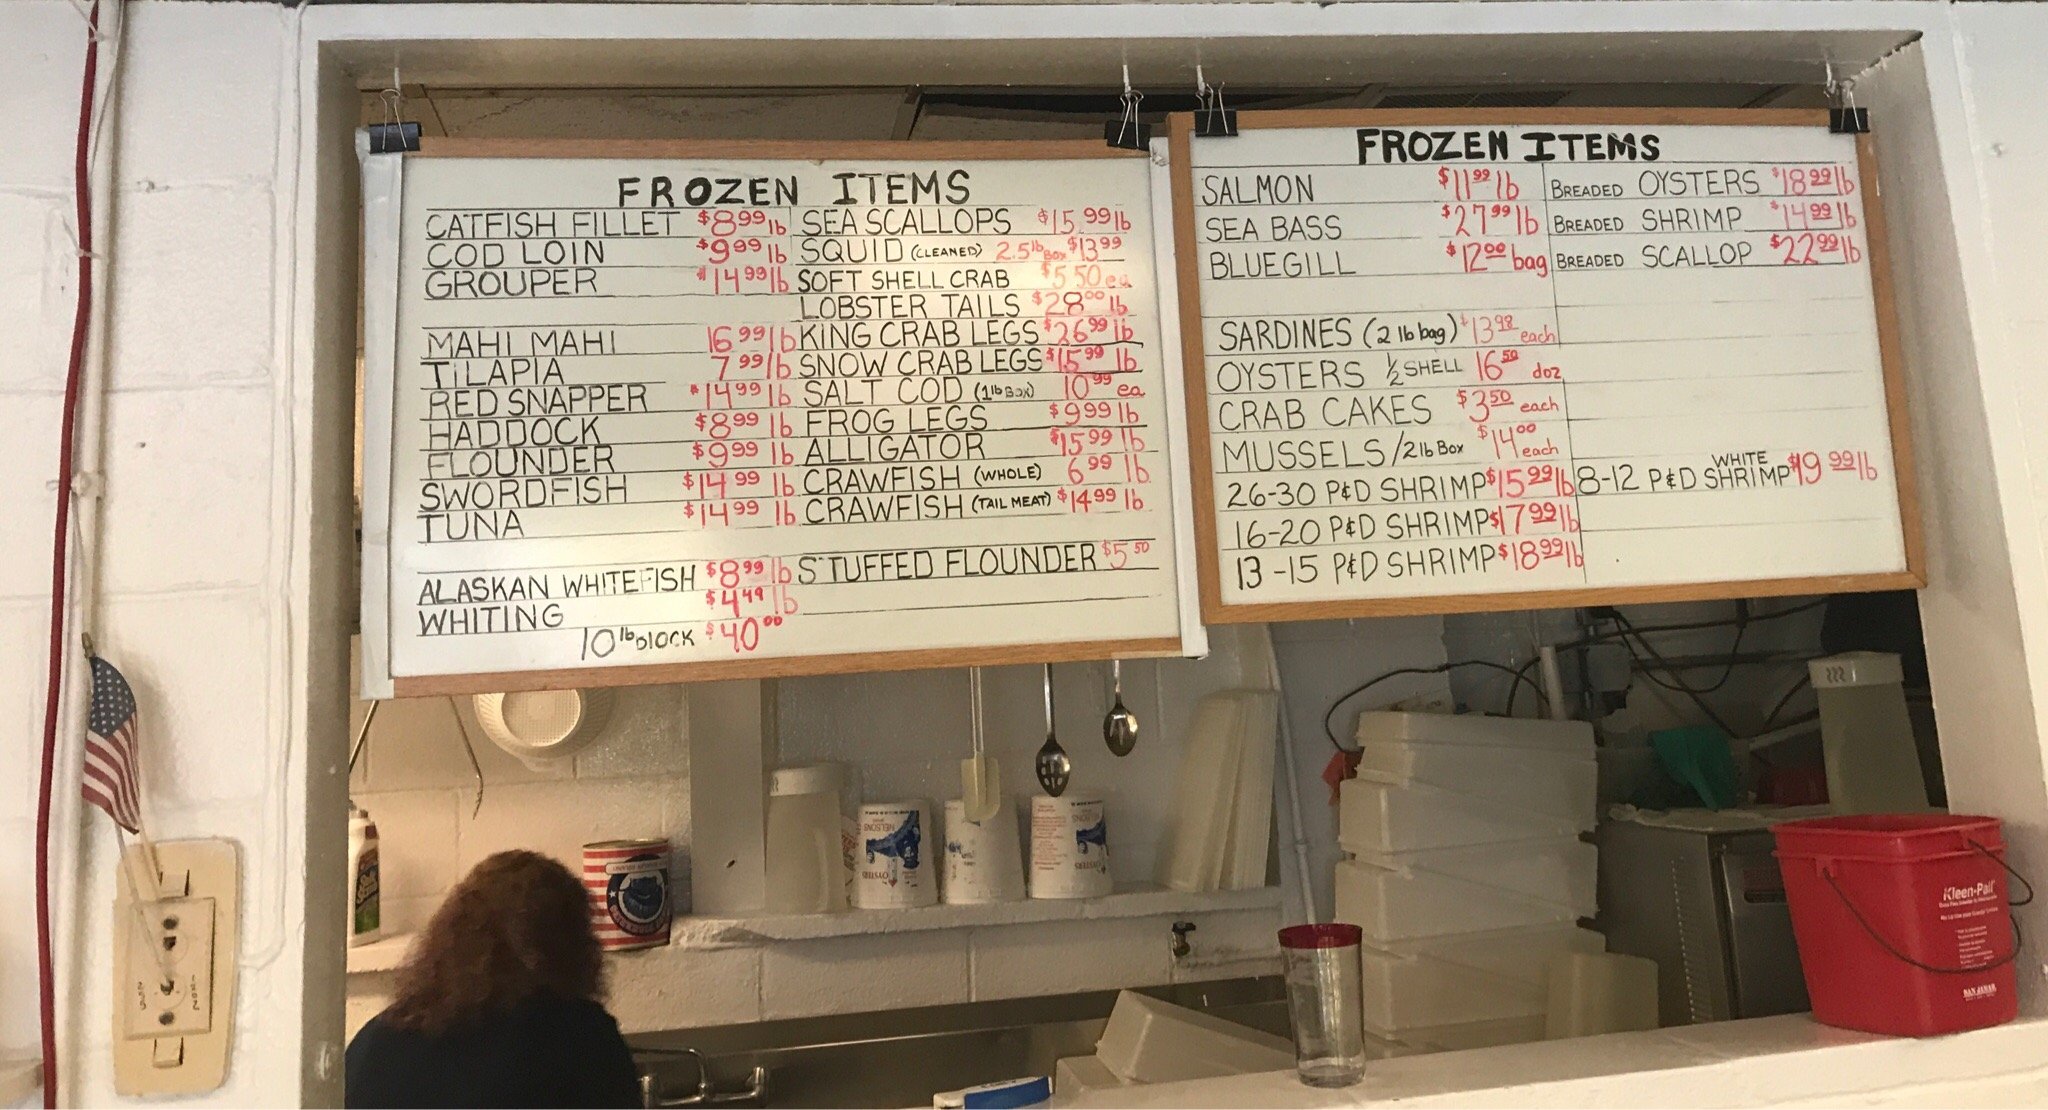 FROZEN ITEMS
CATFISH FILLET $8.99 lb
COD LOIN $9.99 lb
GROUPER $14.99 lb
MAHI MAHI 16.99 lb
TILAPIA 7.99 lb
RED SNAPPER $14.99 lb
HADDOCK $8.99 lb
FLOUNDER $9.99 lb
SWORDFISH $14.99 lb
TUNA $14.99 lb
ALASKAN WHITEFISH $8.99 lb
WHITING $4.49 lb
10 lb BLOCK $40.00
SEA SCALLOPS $15.99 lb
SQUID (CLEANED) 2.5 lb Box $13.99
SOFT SHELL CRAB $5.50 ea
LOBSTER TAILS $28.00 lb
KING CRAB LEGS $26.99 lb
SNOW CRAB LEGS $15.99 lb
SALT COD (1 lb BOX) 10.99 ea
FROG LEGS $9.99 lb
ALLIGATOR $15.99 lb
CRAWFISH (WHOLE) 6.99 lb
CRAWFISH (TAIL MEAT) $14.99 lb
STUFFED FLOUNDER $5.50
FROZEN ITEMS
SALMON $11.99 lb
SEA BASS $27.99 lb
BLUEGILL $12.00 bag
SARDINES (2 lb bag) $13.98 each
OYSTERS ½ SHELL 16.50 doz
CRAB CAKES $3.50 each
MUSSELS/2 lb Box $14.00 each
26-30 P&D SHRIMP $15.99 lb
16-20 P&D SHRIMP $17.99 lb
13-15 P&D SHRIMP $18.99 lb
BREADED OYSTERS $18.99 lb
BREADED SHRIMP $14.99 lb
BREADED SCALLOP $22.99 lb
8-12 P&D WHITE SHRIMP $19.99 lb
NELSONS
OYSTERS
OYSTERS
Kleen-Pail
SAN JAMAR